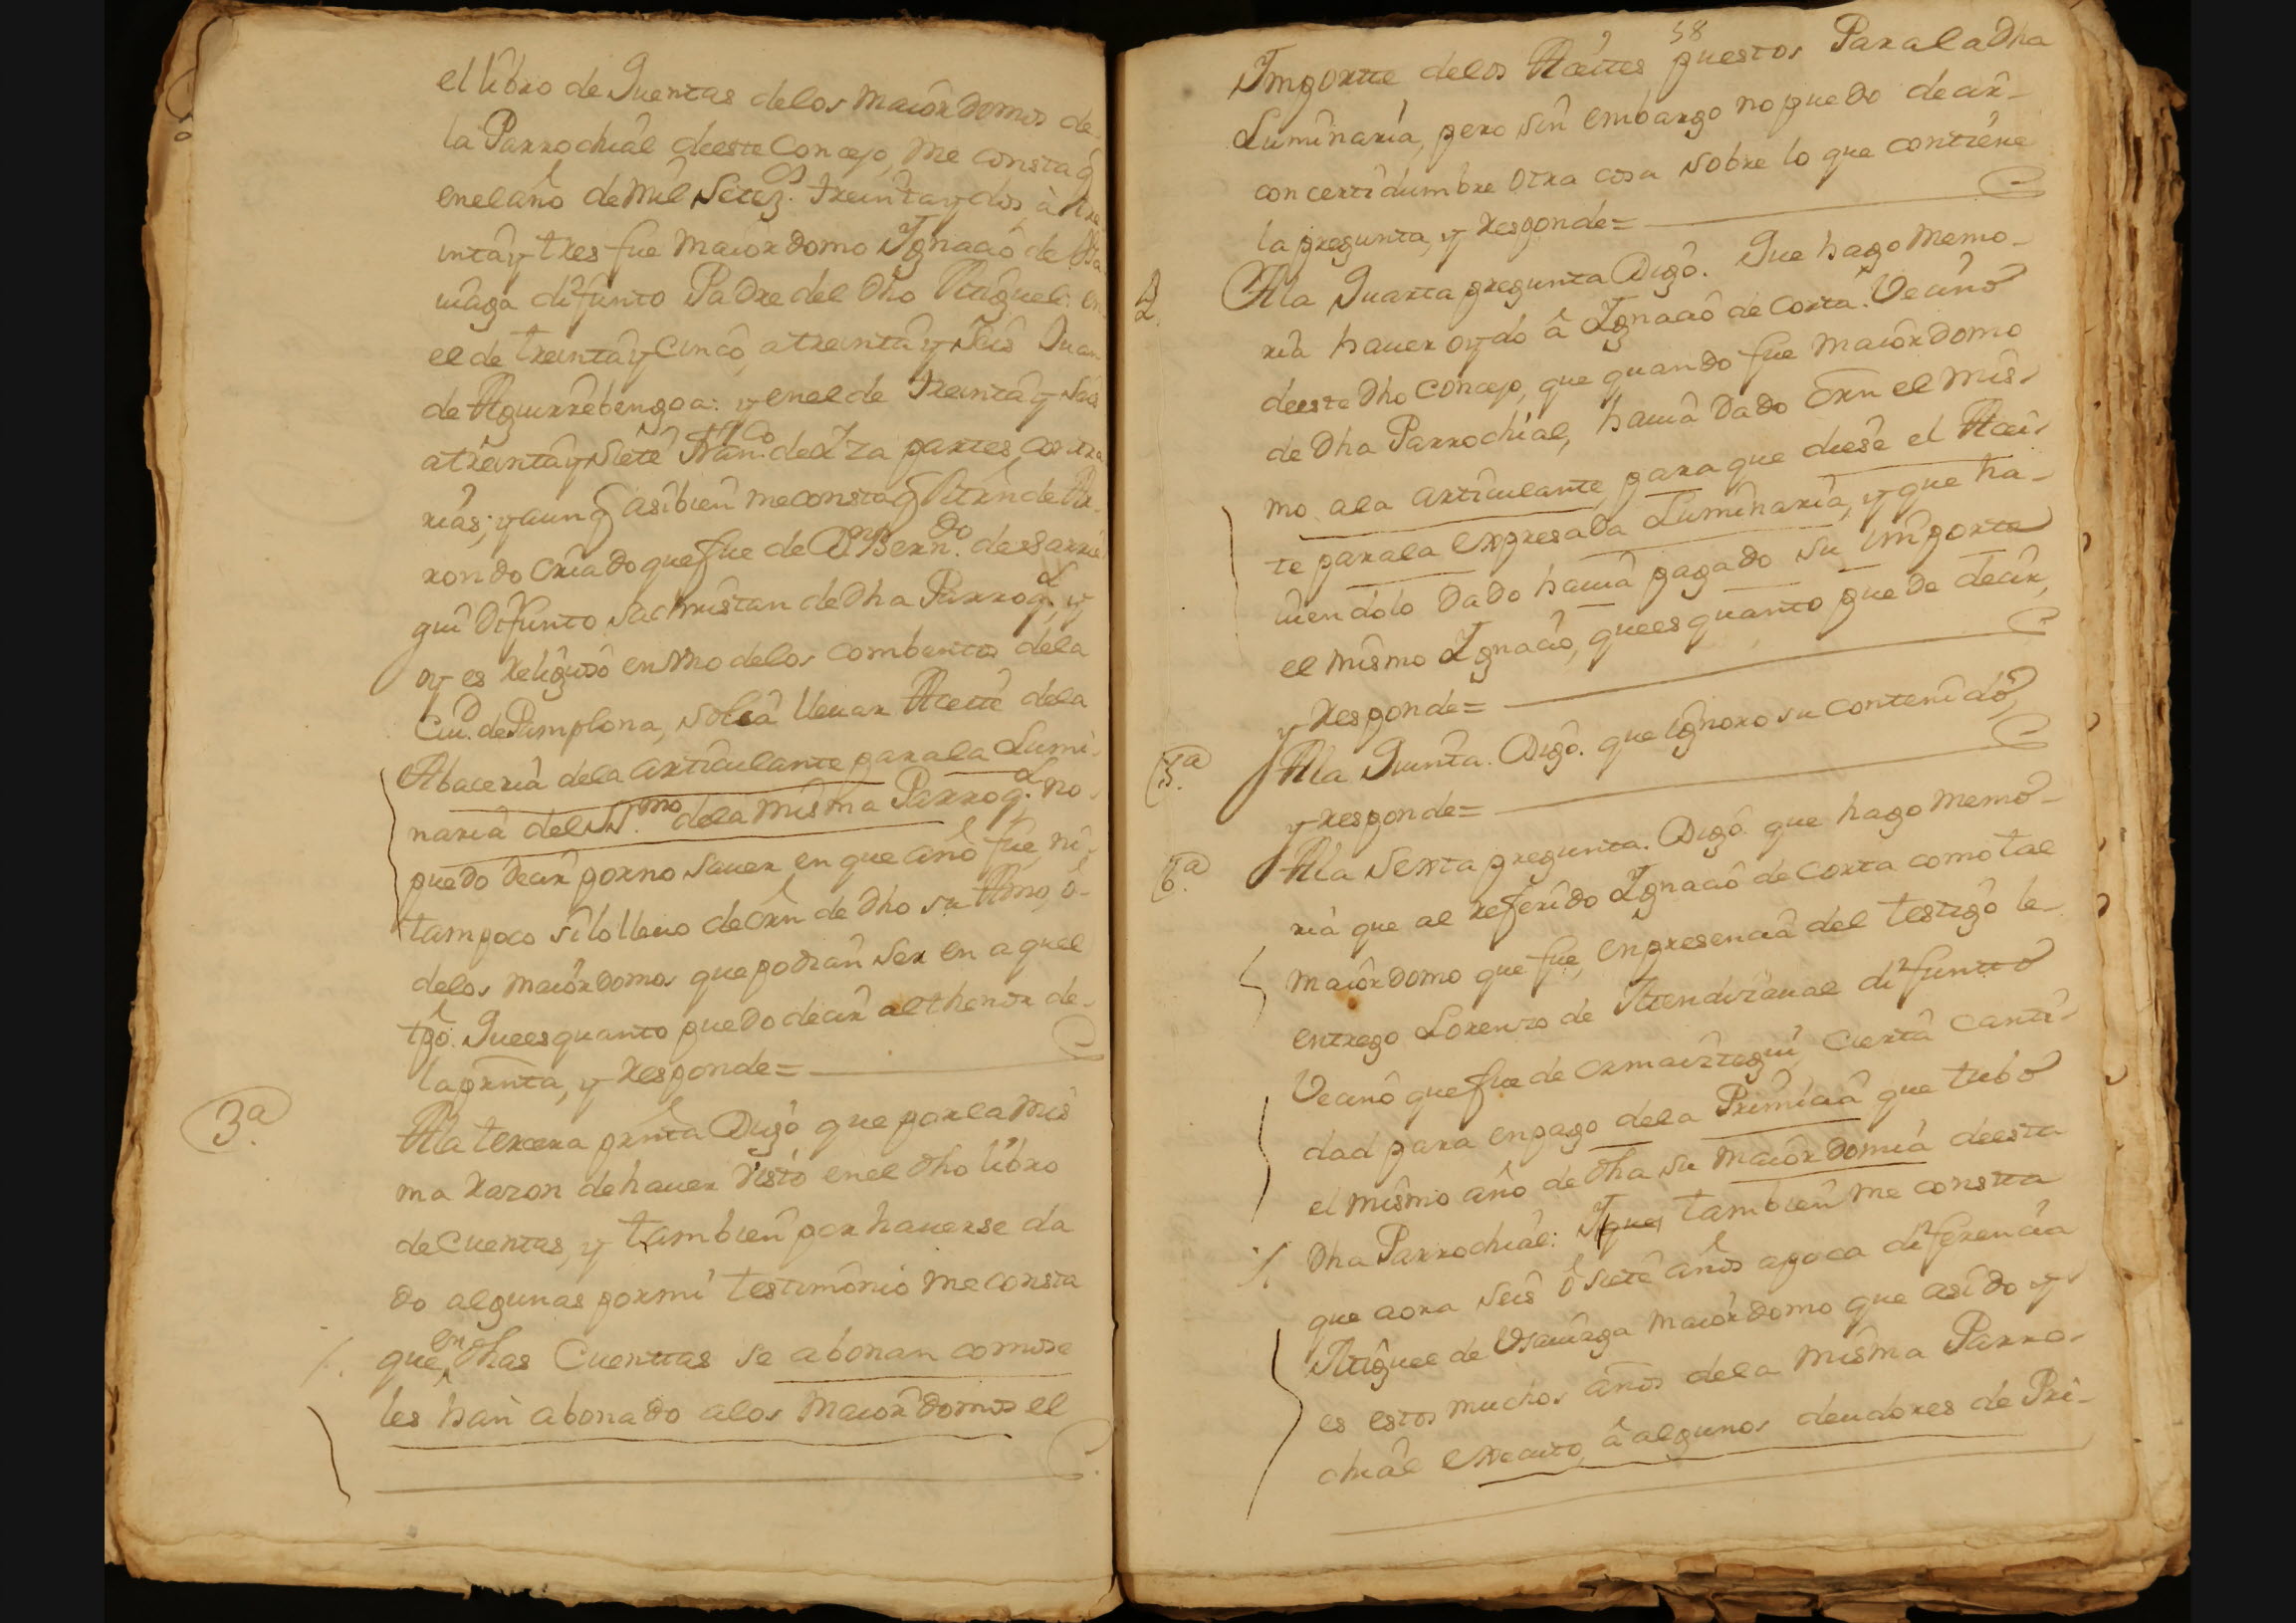 el libro de Quentas delos maiordomos de-
la Parrochial deeste Concejo, me consta q̃
enel año de mil Setez.os treintaydos, à tre
intay tres fue maiordomo Ignacio de
uiaga difunto Padre del Dho Miguel: en
el de treintay cinco, atreintay seis Juan
de Aguirrebengoa: y enel de treintay seis
atreintay siete Fran.co de Iza partes contra
rias; yaunq̃ asibien meconstaq̃ Mrn de Ar-
rondo criado quefue de Dn Bern.do de
gui Difunto sachristan de Dha Parroq.l y
oy es Religioso en Vno delos combentos dela
Ciu.d de Pamplona, solia lleuar Aceite dela
Abaceria dela articulante parala Lumi-
naria del SS.mo dela misma Parroq.l no
puedo decir porno sauer en que año fue, ni
tampoco silo lleuo de orn de Dho su Amo, ò
delos maiordomos que podian ser en aquel
tpo. Quees quanto puedo decir althenor de
la prnta, y Responde=
3a.
Ala tercera prnta Digo que por la mis
ma Razon de hauer visto enel dho libro
de Cuentas, y tambien por hauerse da
do algunas por mi testimonio me consta
que en dhas Cuenttas se abonan comose
les han abonado alos maiordomos el
58
Importte delos Aceites puestos Para la Dha
Luminaria, pero sin embargo no puedo decir
con certidumbre otra cosa sobre lo que contiene
la pregunta, y Responde=
4a.
Ala Quarta pregunta Digo. Que hago memo-
ria hauer oydo â Ignacio de Corta. Vecino
deeste Dho Concejo, que quando fue maiordomo
de Dha Parrochial, hauia Dado orn el mis-
mo ala articulante para que diese el Acei-
te parala expresada Luminaria, y que ha-
uiendolo Dado hauia pagado su importe
el mismo Ignacio, quees quanto puede decir,
y Responde=
5.a
Ala Quinta. Digo. que ignoro su contenido,
y responde=
6.a
Ala sexta pregunta. Digo que hago memo-
ria que al referido Ignacio de Corta como tal
maiordomo que fue, enpresencia del testigo le
entrego Lorenzo de Mendizaual difunto
Vecino quefue de ormaiztegui, cierta canti-
dad para enpago dela Primicia que tubo
el mismo año de Dha su maiordomia deesta
Dha Parrochial: Ique, tambien me constta
que aora seis ô siete años apoca diferencia
Miguel de maiordomo que asido y
es estos muchos años dela misma Parro-
chial executo, â algunos deudores de Pri-